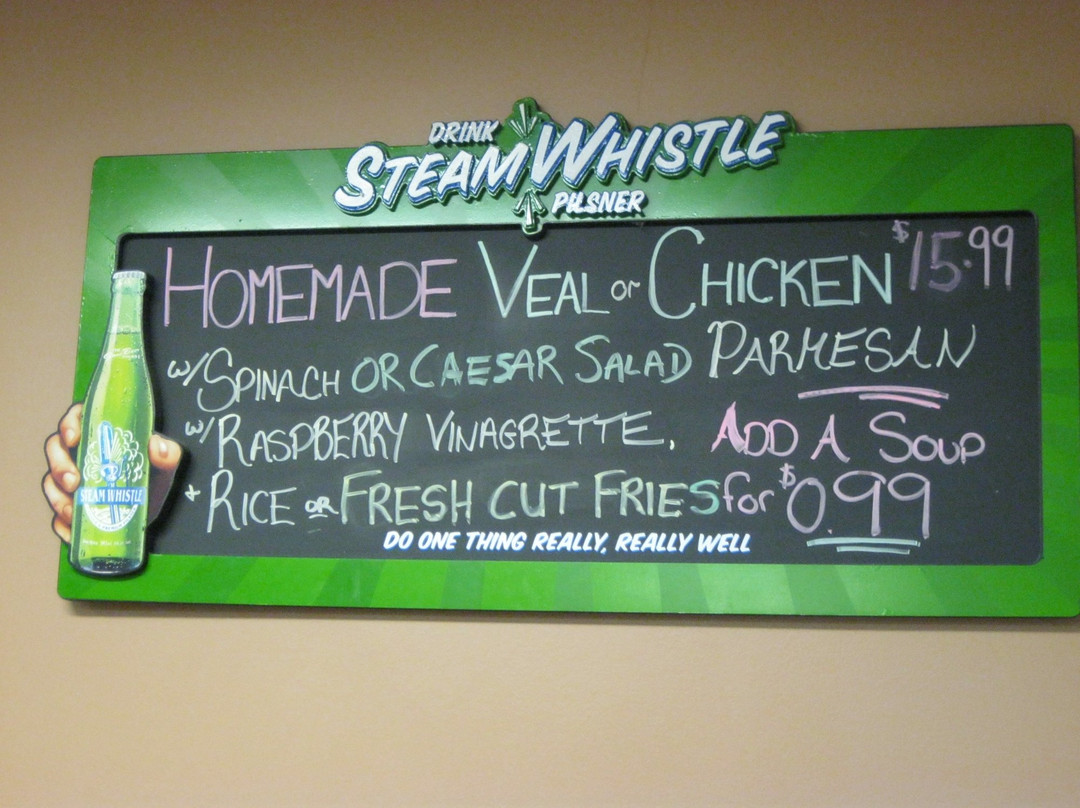 DRINK
STEAM WHISTLE
PILSNER
HOMEMADE VEAL or CHICKEN $15.99
PARMESAN
w/ SPINACH OR CAESAR SALAD
w/ RASPBERRY VINAGRETTE.
+ RICE OR FRESH CUT FRIES
ADD A SOUP
for $0.99
DO ONE THING REALLY, REALLY WELL
STEAM WHISTLE